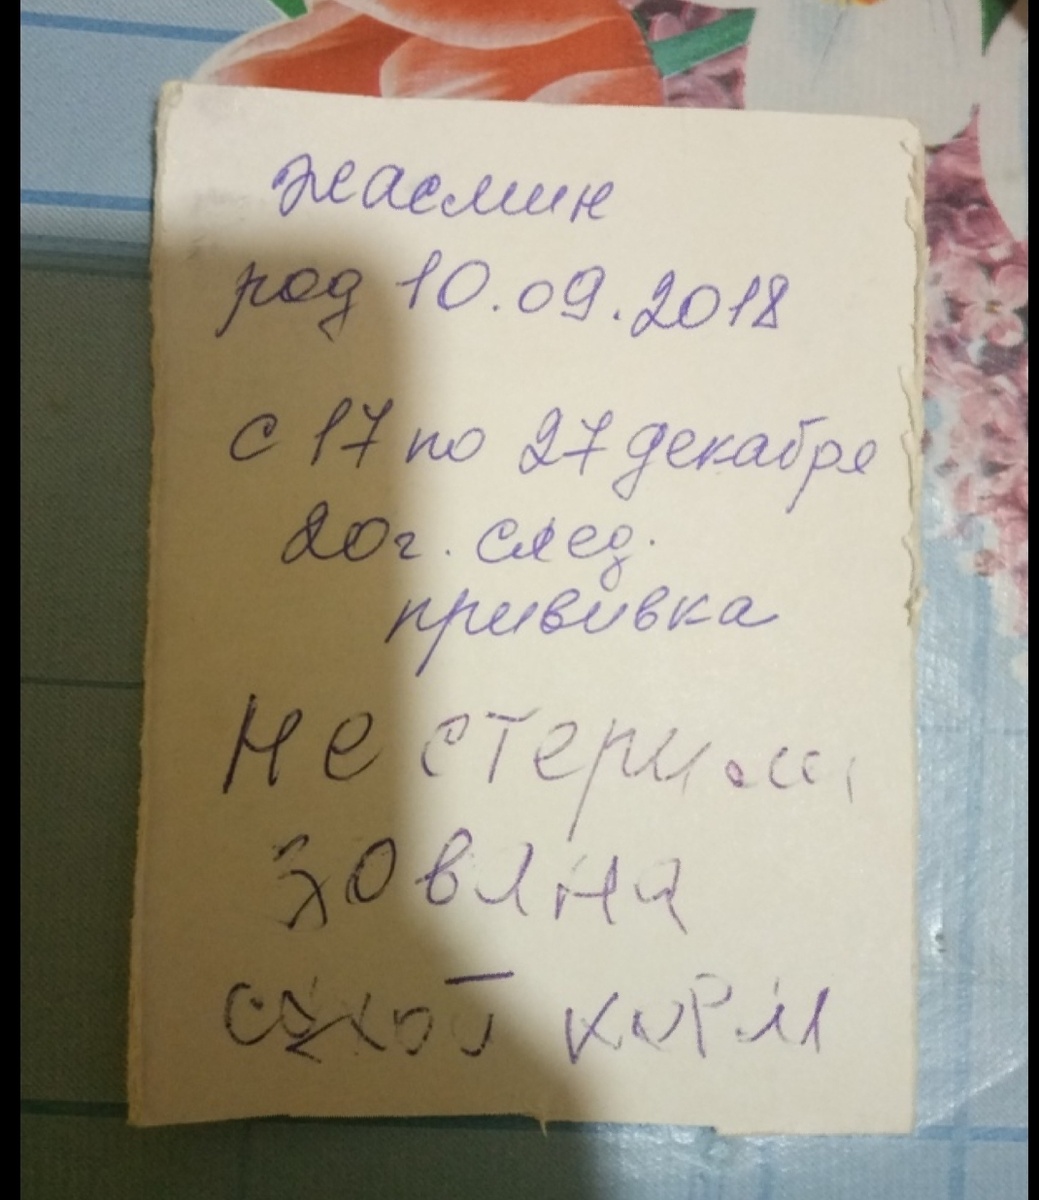 жасмин
род 10.09.2018
с 17 по 27 декабря
20г. след.
прививка
Не стерили
зована
сухой корм